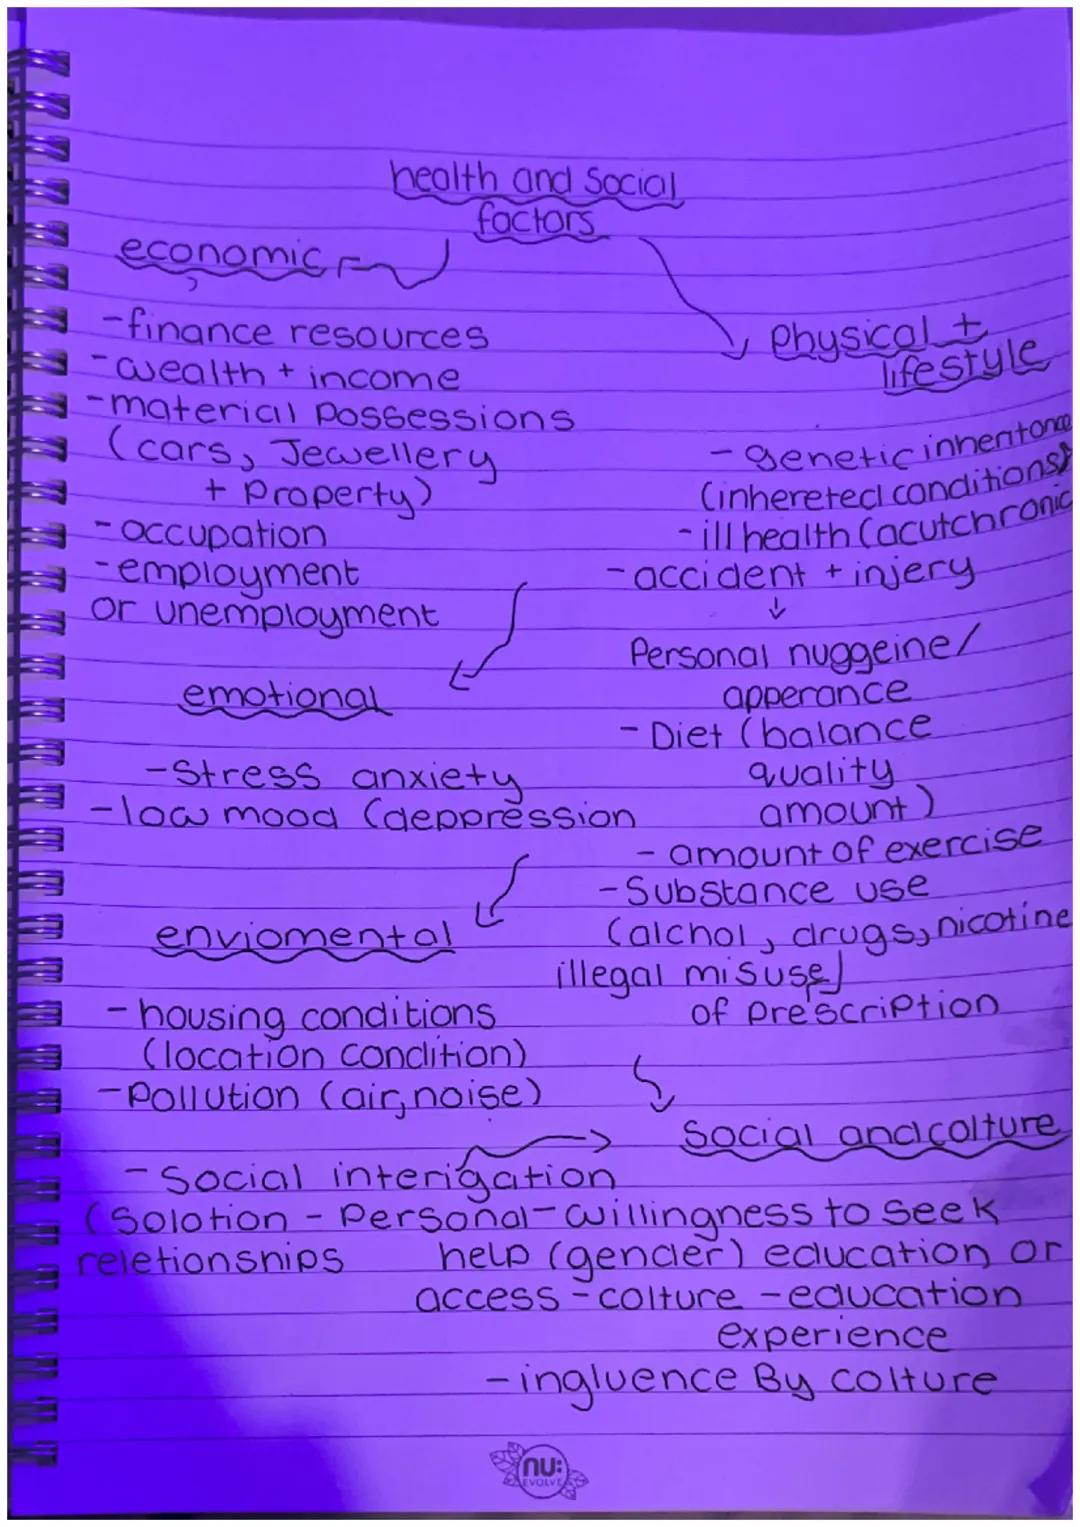 health and Social
factors
economic
-finance resources
-wealth + income
-material possessions
(cars, Jewellery
+ Property)
-occupation
-employment
or unemployment
emotional
-Stress anxiety
-low mood (deppression
enviomental
-housing conditions
(location condition)
-Pollution (air, noise)
Physical +
lifestyle
-genetic inheritance
(inhereted conditions)
-ill health (acutchronic
-accident + injery
Personal nuggeine/
apperance
-Diet (balance
quality
amount)
-amount of exercise
-Substance use
(alchol, drugs, nicotine
illegal misuse)
of prescription
Social and colture
-Social interigation
(Solotion - Personal-willingness to seek
reletionships help (gender) education or
access - colture - education
experience
-ingluence By colture
nu:
EVOLVE